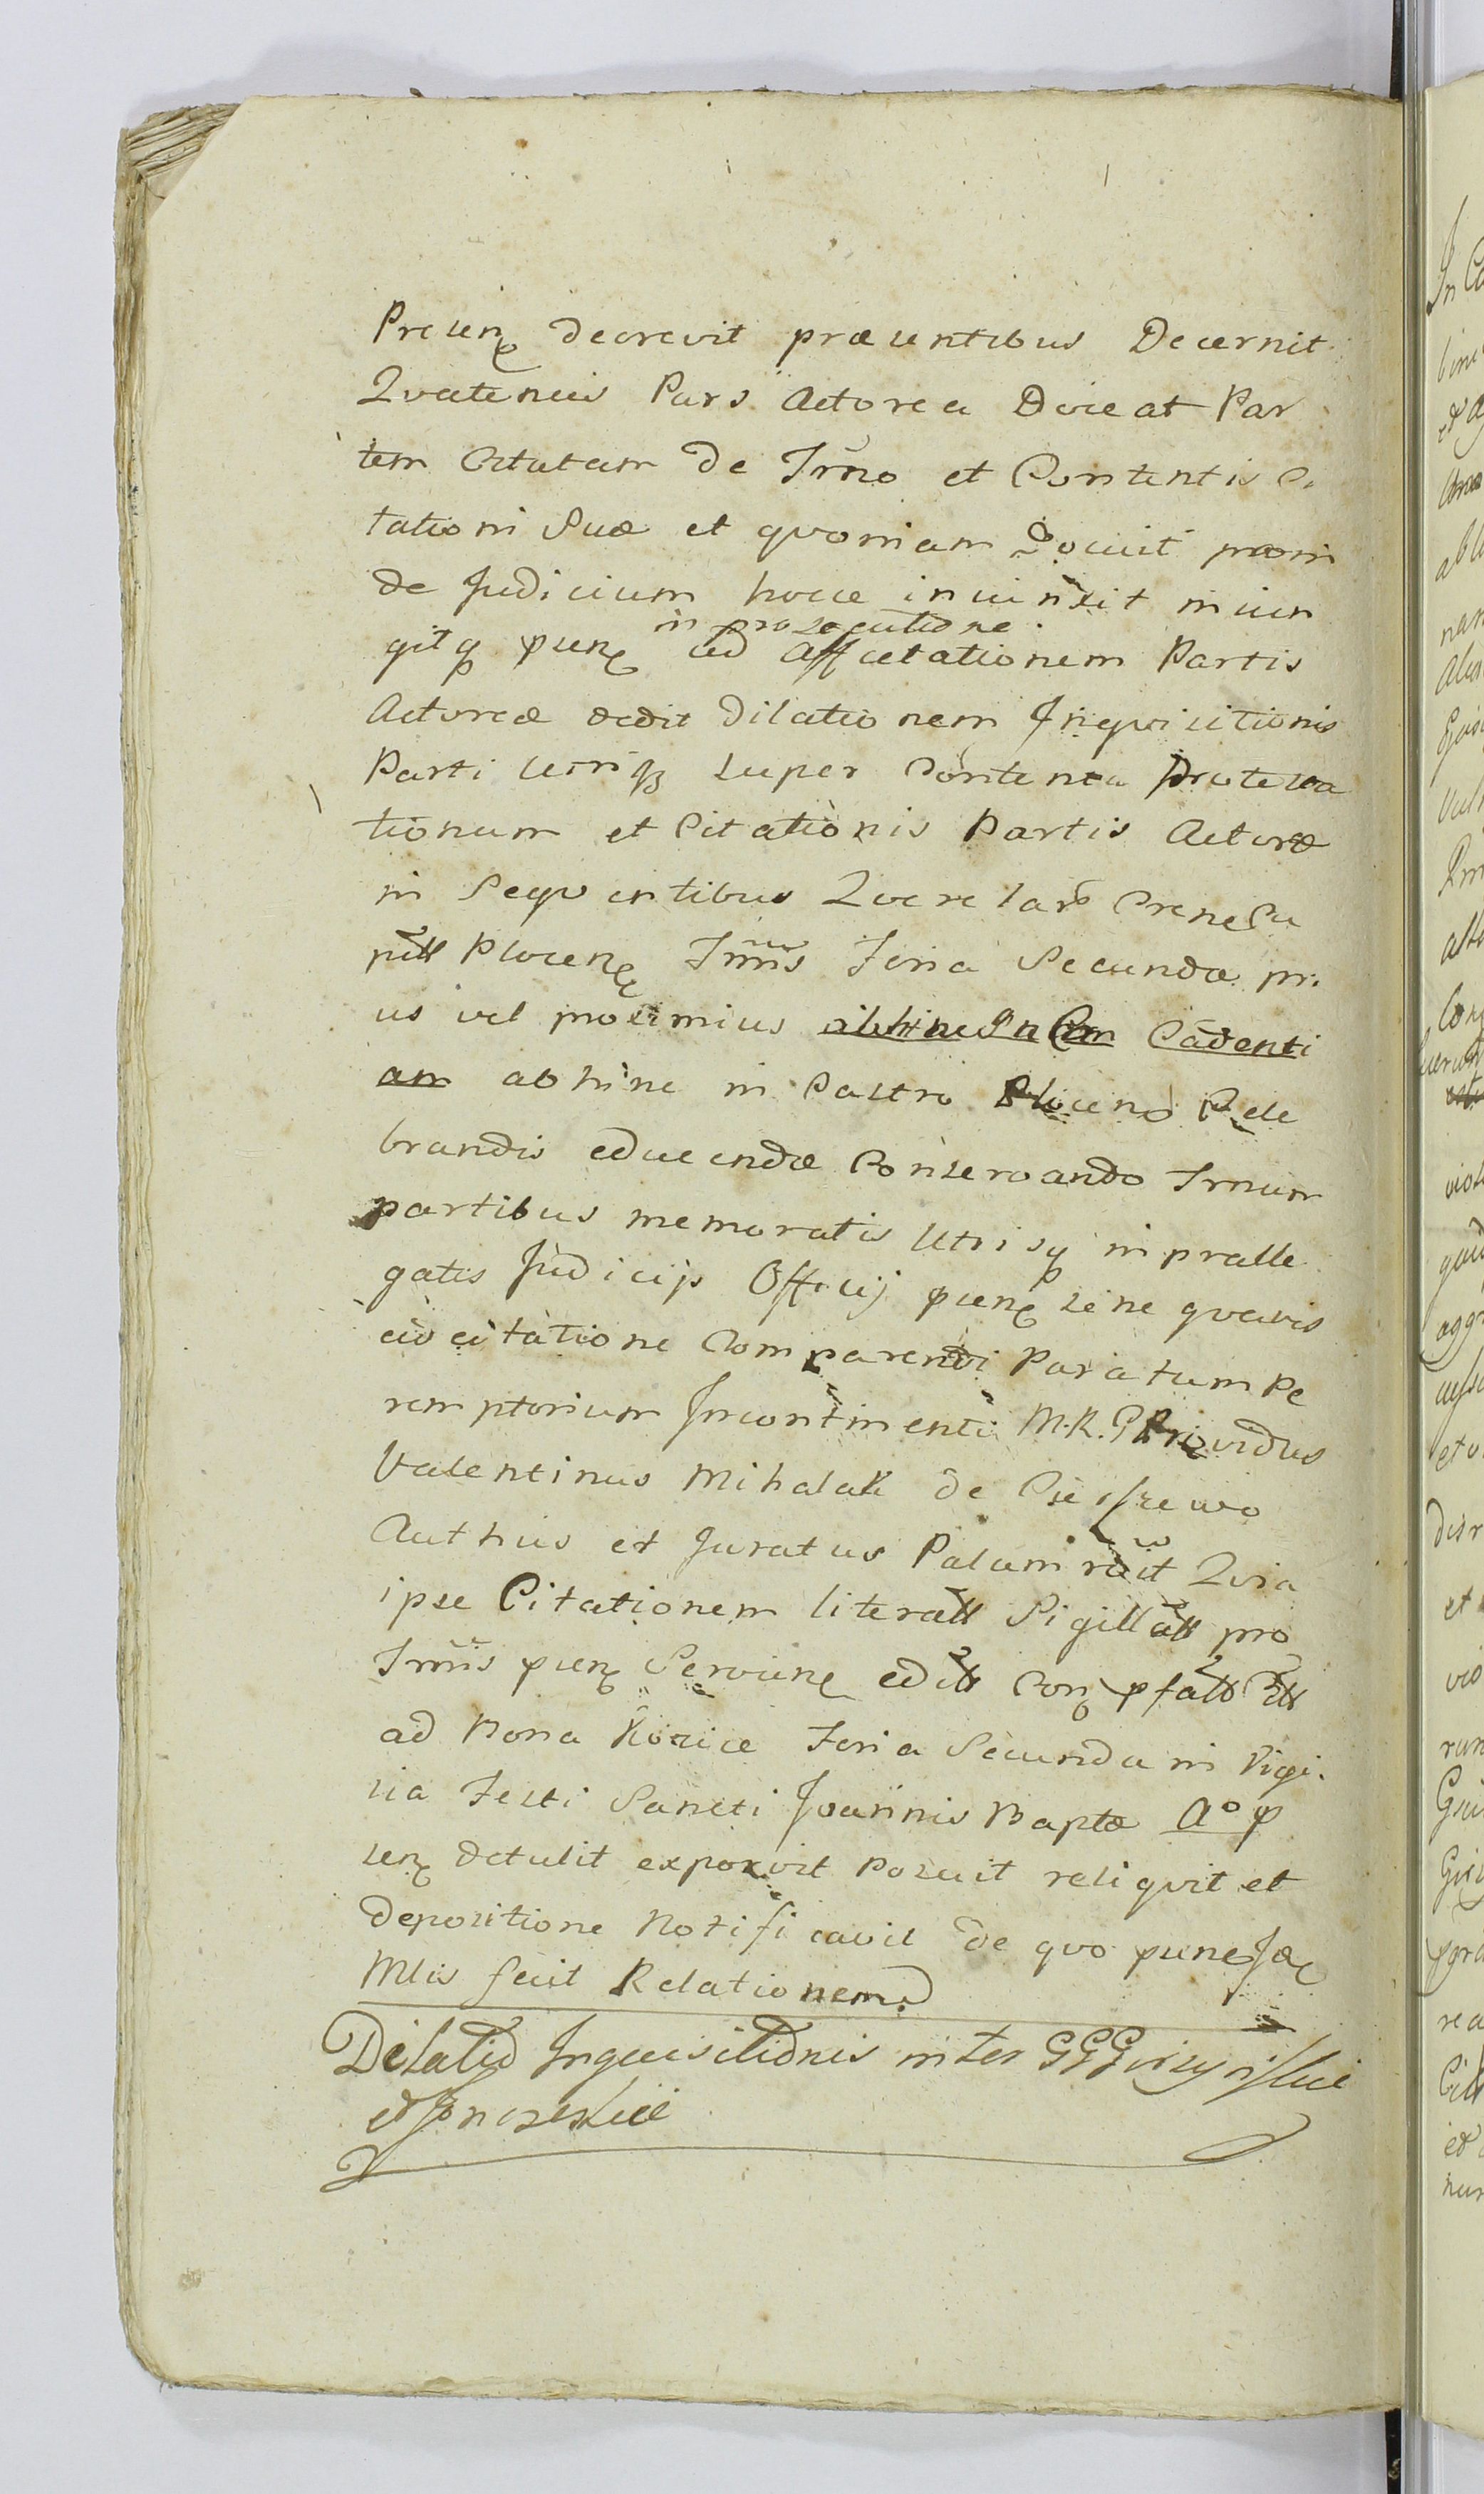 Presen decrevit præsentibus Decernit
Quatenus Pars Actorea Doceat Par
tem Citatam de Trno et Contentis Ci
tationi Suæ et quoniam Docuit proin
de Judicium hocce iniunxit iniun
in prosecutione
gitq psen ad Affectationem Partis
Actoreæ dedit Dilationem Inquisitionis
Parti utriq super Contenta Protesta
tionum et Citationis Partis Actoreæ
in Sequentibus Querelar
Plocen Trmis Feria Secunda pri
us vel proximius abhinc In Cadenti
am abhinc in Castro Plocen Cele
brandis educendæ Conservando Trnum
partibus memoratis Utrisq in prælle
gatis Judicijs Officij psen sine quavis
adcitatione Comparendi Paratum Pe
remptorium Incontinenti M.R. Providus
Valentinus Mihalak de
Authus et Juratus Palam Quia
ipse Citationem literall Sigillatt pro
Trmis psen Servien editt Con
ad Bona Feria Secunda in Vigi
lia Festi Sancti Joannis Baptæ Ao p
sen detulit exposuit Posuit reliquit et
depositione Notificavit de quo
Mlis fecit Relationem
Dilatio Inquisitionis inter GGG
et